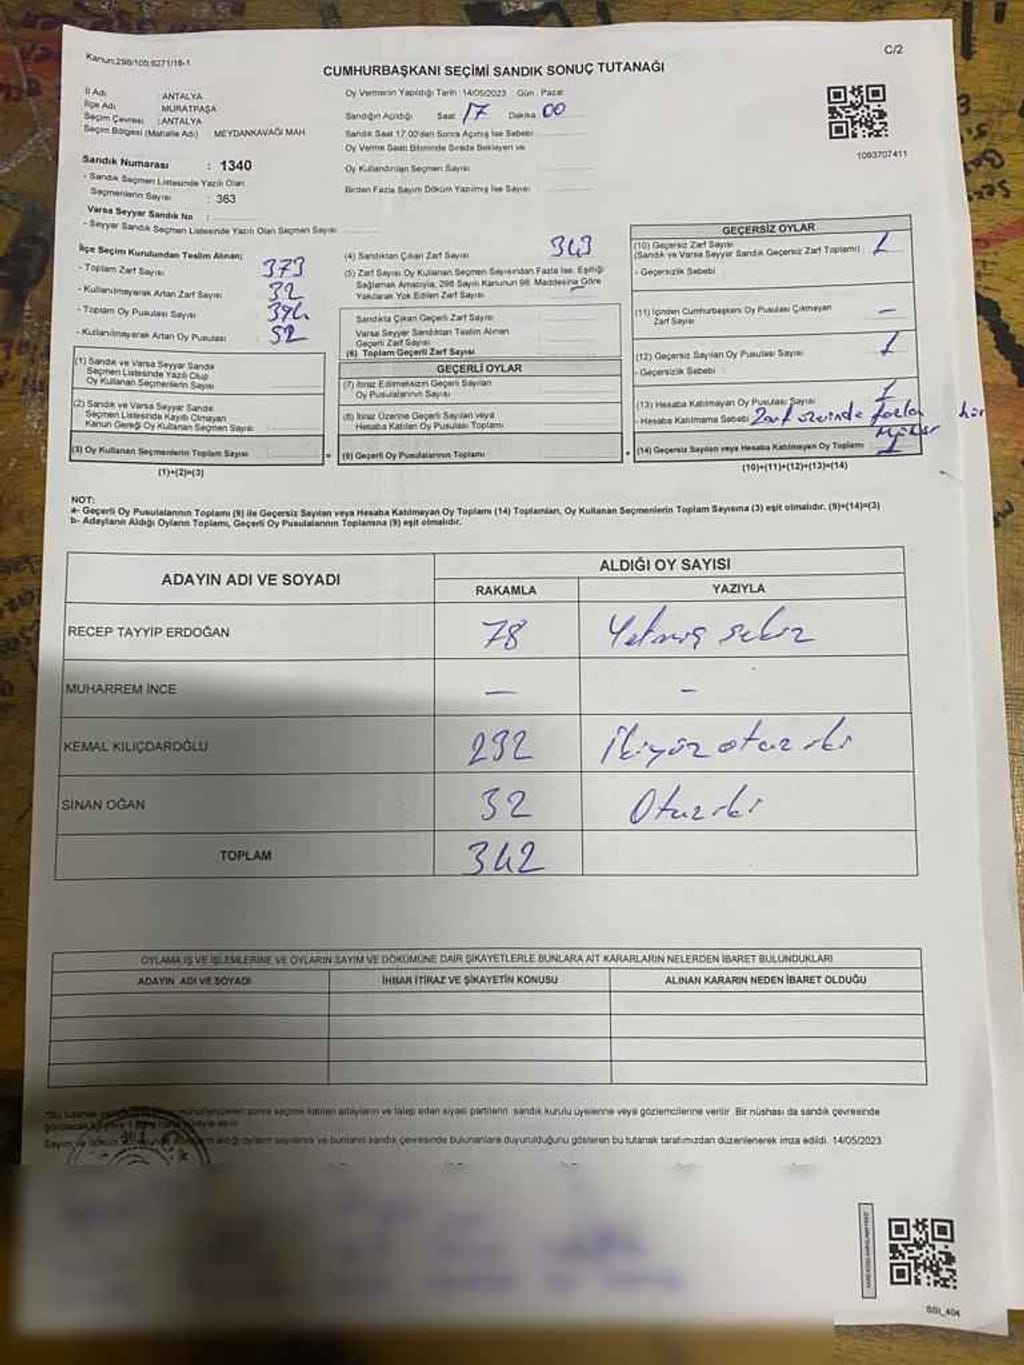 Kanun:298/105;6271/18-1
C/2
CUMHURBAŞKANI SEÇİMİ SANDIK SONUÇ TUTANAĞI
İl Adı : ANTALYA
İlçe Adı : MURATPAŞA
Seçim Çevresi : ANTALYA
Seçim Bölgesi (Mahalle Adı) MEYDANKAVAĞI MAH.
Sandık Numarası : 1340
- Sandık Seçmen Listesinde Yazılı Olan
Seçmenlerin Sayısı : 363
Varsa Seyyar Sandık No :
- Seyyar Sandık Seçmen Listesinde Yazılı Olan Seçmen Sayısı
Oy Vermenin Yapıldığı Tarih : 14/05/2023 Gün : Pazar
Sandığın Açıldığı Saat 17 Dakika 00
Sandık Saat 17:00'den Sonra Açılmış İse Sebebi
Oy Verme Saati Bitiminde Sırada Bekleyen ve
Oy Kullandırılan Seçmen Sayısı
Birden Fazla Sayım Döküm Yapılmış İse Sayısı
1093707411
İlçe Seçim Kurulundan Teslim Alınan;
- Toplam Zarf Sayısı 373
- Kullanılmayarak Artan Zarf Sayısı 32
- Toplam Oy Pusulası Sayısı
- Kullanılmayarak Artan Oy Pusulası : 52
(1) Sandık ve Varsa Seyyar Sandık
Seçmen Listesinde Yazılı Olup
Oy Kullanan Seçmenlerin Sayısı
(2) Sandık ve Varsa Seyyar Sandık
Seçmen Listesinde Kayıtlı Olmayan
Kanun Gereği Oy Kullanan Seçmen Sayısı
(3) Oy Kullanan Seçmenlerin Toplam Sayısı
(1)+(2)=(3)
(4) Sandıktan Çıkan Zarf Sayısı 343
(5) Zarf Sayısı Oy Kullanan Seçmen Sayısından Fazla İse, Eşitliği
Sağlamak Amacıyla; 298 Sayılı Kanunun 98. Maddesine Göre
Yakılarak Yok Edilen Zarf Sayısı –
Sandıkta Çıkan Geçerli Zarf Sayısı
Varsa Seyyar Sandıktan Teslim Alınan
Geçerli Zarf Sayısı
(6) Toplam Geçerli Zarf Sayısı
GEÇERLİ OYLAR
(7) İtiraz Edilmeksizin Geçerli Sayılan
Oy Pusulalarının Sayısı
(8) İtiraz Üzerine Geçerli Sayılan veya
Hesaba Katılan Oy Pusulası Toplamı
= (9) Geçerli Oy Pusulalarının Toplamı +
GEÇERSİZ OYLAR
(10) Geçersiz Zarf Sayısı
(Sandık ve Varsa Seyyar Sandık Geçersiz Zarf Toplamı) : 1
- Geçersizlik Sebebi
(11) İçinden Cumhurbaşkanı Oy Pusulası Çıkmayan
Zarf Sayısı –
(12) Geçersiz Sayılan Oy Pusulası Sayısı : 1
- Geçersizlik Sebebi :
(13) Hesaba Katılmayan Oy Pusulası Sayısı 1
- Hesaba Katılmama Sebebi Zarf üzerinde fazla bir
Mühür
(14) Geçersiz Sayılan veya Hesaba Katılmayan Oy Toplamı 1
(10)+(11)+(12)+(13)=(14)
NOT:
a- Geçerli Oy Pusulalarının Toplamı (9) ile Geçersiz Sayılan veya Hesaba Katılmayan Oy Toplamı (14) Toplamları, Oy Kullanan Seçmenlerin Toplam Sayısına (3) eşit olmalıdır. (9)+(14)=(3)
b- Adayların Aldığı Oyların Toplamı, Geçerli Oy Pusulalarının Toplamına (9) eşit olmalıdır.
ADAYIN ADI VE SOYADI
ALDIĞI OY SAYISI
RAKAMLA YAZIYLA
RECEP TAYYİP ERDOĞAN 78 Yetmiş sekiz
MUHARREM İNCE – –
KEMAL KILIÇDAROĞLU 232 İkiyüz otuz iki
SİNAN OĞAN 32 Otuz iki
TOPLAM 342
OYLAMA İŞ VE İŞLEMLERİNE VE OYLARIN SAYIM VE DÖKÜMÜNE DAİR ŞİKAYETLERLE BUNLARA AİT KARARLARIN NELERDEN İBARET BULUNDUKLARI
ADAYIN ADI VE SOYADI İHBAR İTİRAZ VE ŞİKAYETİN KONUSU ALINAN KARARIN NEDEN İBARET OLDUĞU
sonra seçime katılan adayların ve talep eden siyasi partilerin sandık kurulu üyelerine veya gözlemcilerine verilir. Bir nüshası da sandık çevresinde
Sayım ve döküm aldığı oyların sayılarını ve bunların sandık çevresinde bulunanlara duyurulduğunu gösteren bu tutanak tarafımızdan düzenlenerek imza edildi. 14/05/2023
SSI_404